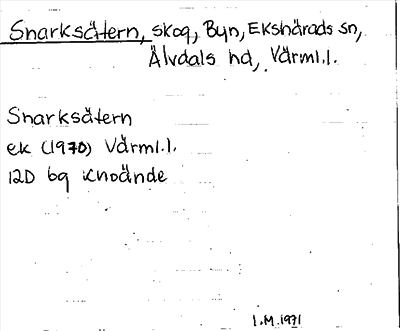 Snarksätern, skog, Byn, Ekshärads sn,
Älvdals hd, Värml.l.
Snarksätern
ek (1970) Värml.l.
12D bg Knoände
I.M.1971